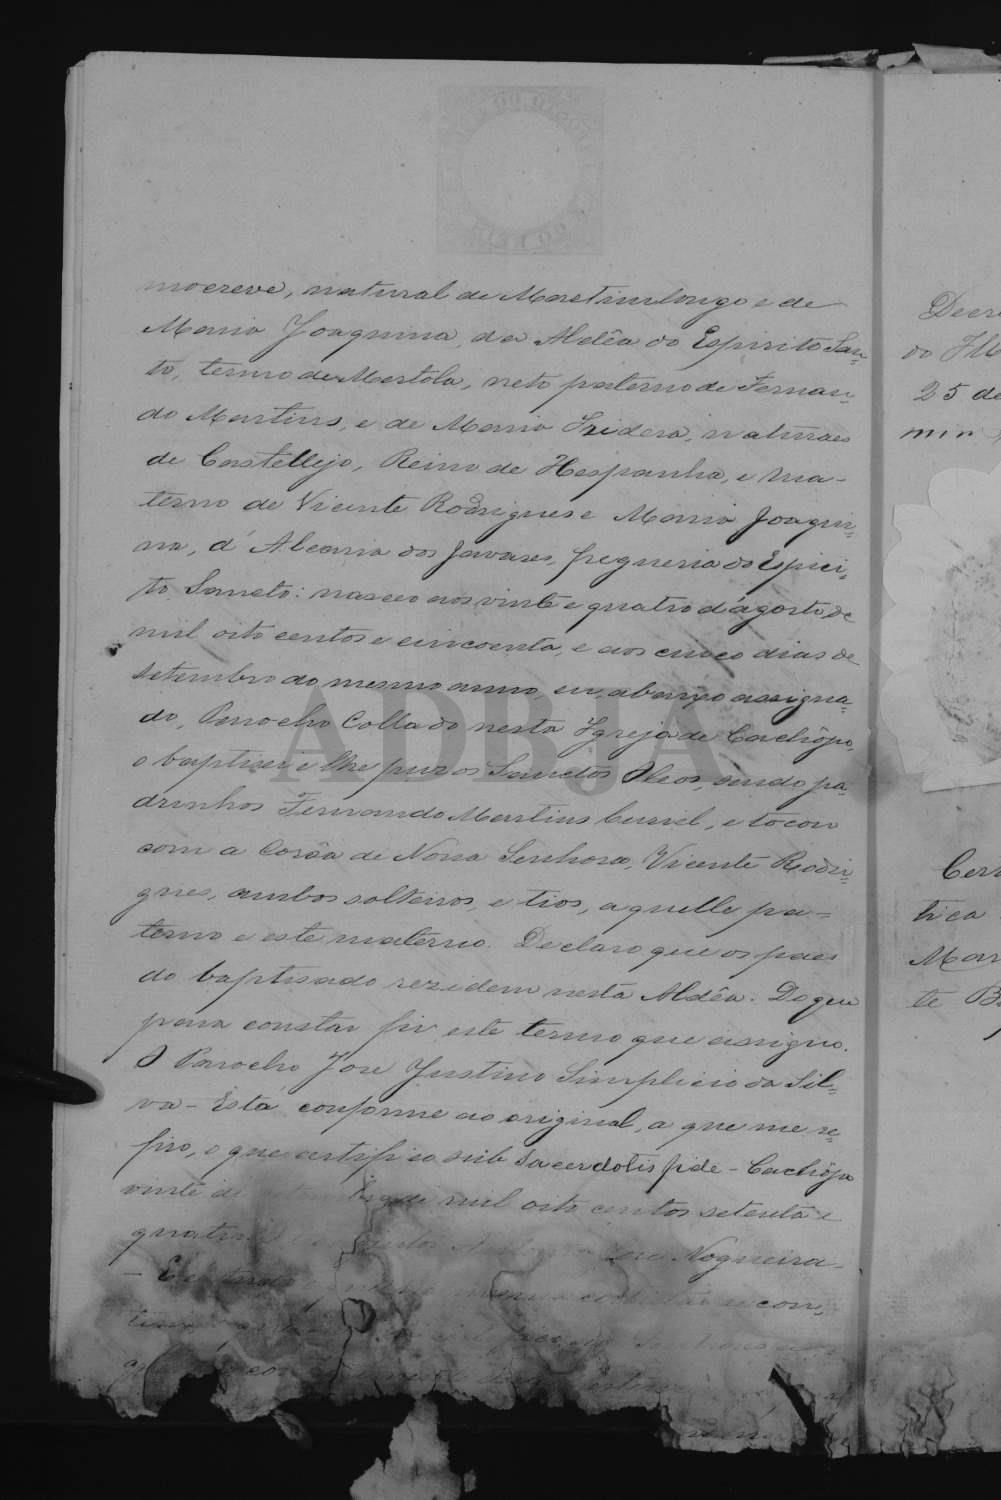 mocreve, natural de Martimlongo e de
Maria Joaquina, da Aldêa do Espirito San=
to, termo de Mertola, neto paterno de Fernan=
do Martins, e de Maria Izidera, naturaes
de Castellejo, Reino de Hespanha, e ma-
terno de Vicente Rodrigues e Maria Joaqui=
na, d'Alcaria dos Javares, freguesia do Espiri=
to Sancto: nasceo aos vinte e quatro d'agosto de
mil oito centos e cincoenta, e aos cinco dias de
setembro do mesmo anno, eu abaixo assigna=
do, Parocho Collado nesta Igreja de Cachôpo,
o baptisei e lhe puz os Sanctos Oleos, sendo pa=
drinhos Fernando Martins Curvel, e tocou
com a Corôa de Nossa Senhora, Vicente Rodri=
gues, ambos solteiros, e tios, aquelle pa=
terno e este materno. Declaro que os paes
do baptisado rezidem nesta Aldêa. Do que
para constar fiz este termo que assigno.
O Parocho José Justino Simplicio da Sil=
va - Está conforme ao original, a que me re=
firo, o que certifico sub Sacerdotis fide - Cachôpo
vinte de mil oito centos setenta e
quatro José Nogueira -
con=
Decr
do Ill
25 de
min
Cer
tica
Mar
te B
ADBJA